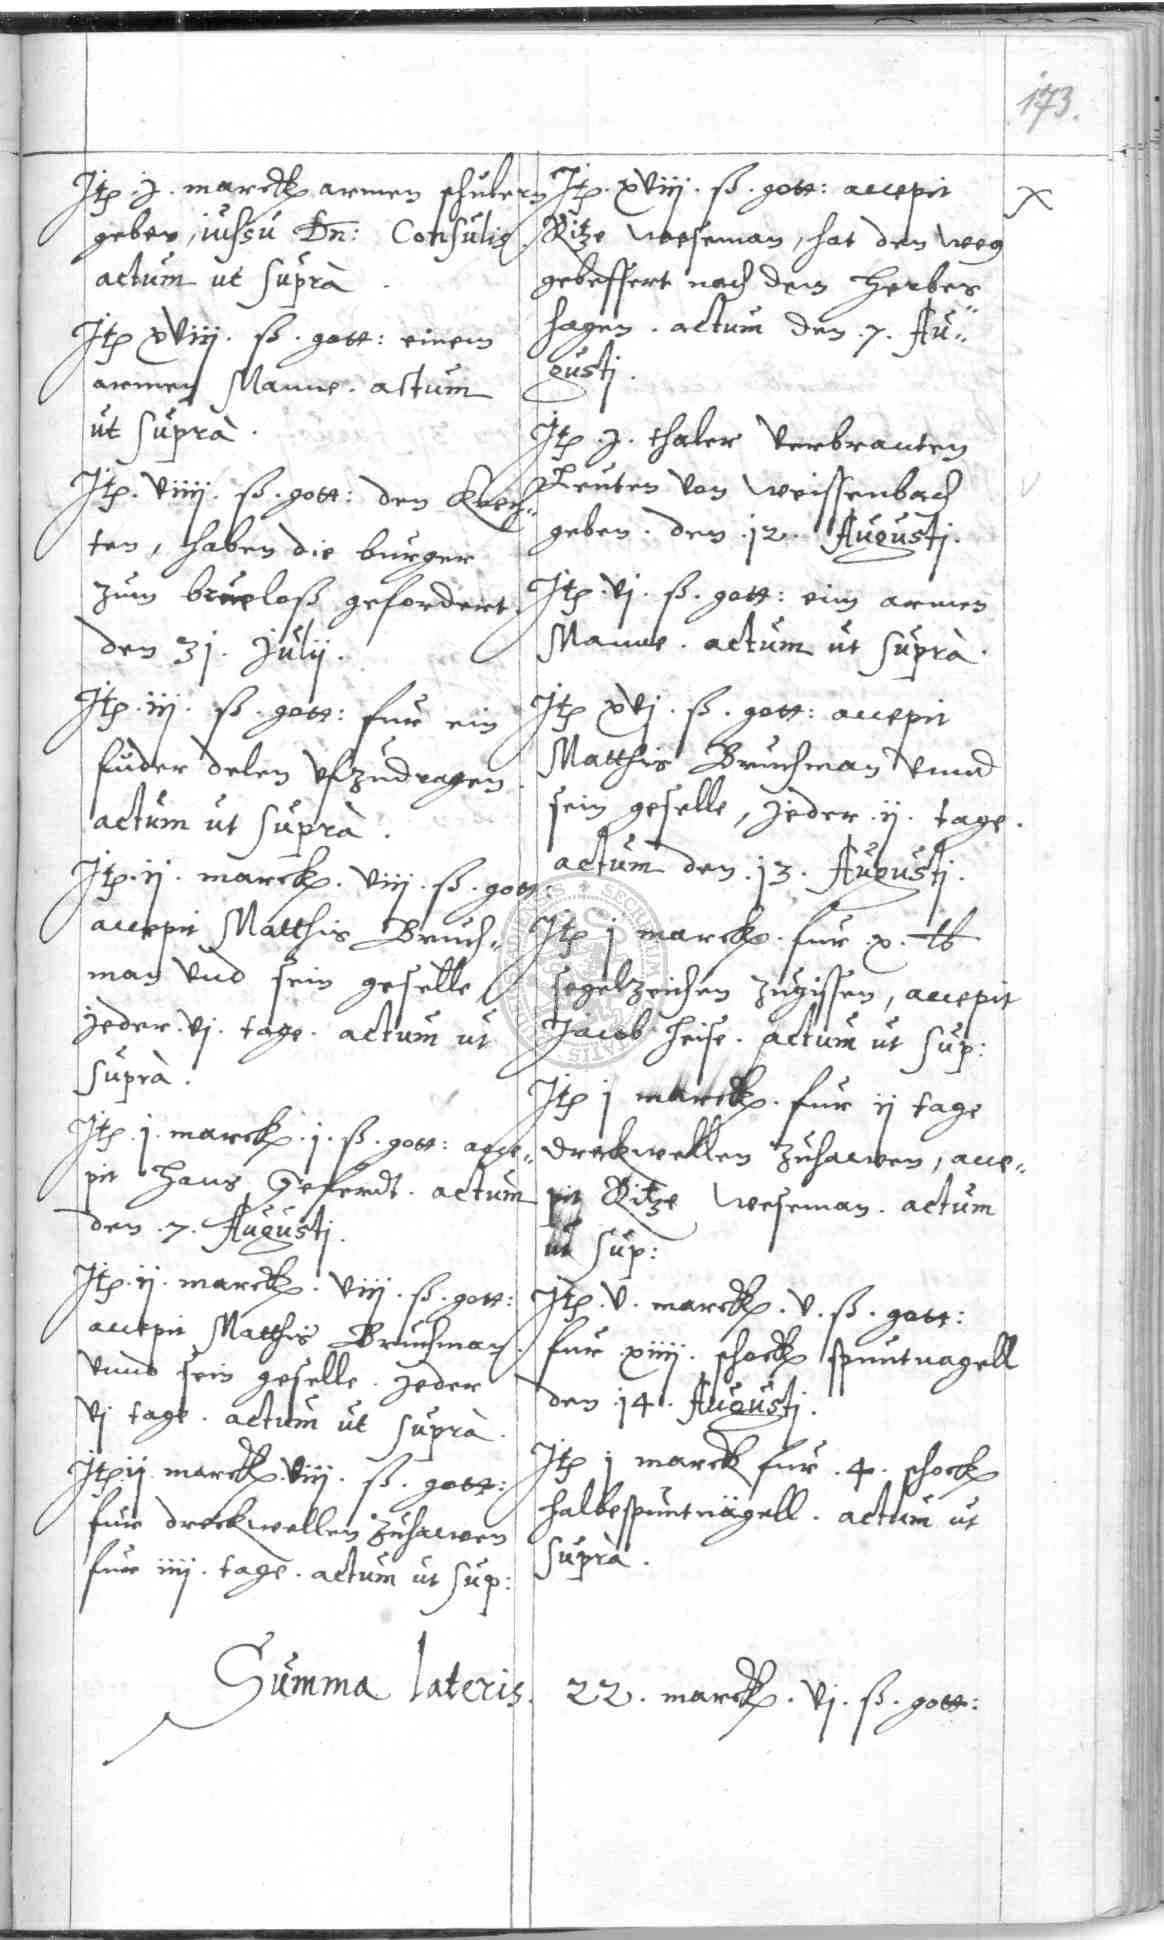 173.
Itꝑ .j. marckꝑ armen schulern
geben, iussu Dn: Consulis.
actum ut suprà.
Itꝑ xviij. ß. gott: einem
armen Manne. actum
ut suprà.
Itꝑ. viiij. ß. gott: den Knech„
ten, haben die burger
zum gefordert.
den 3j. Julij.
Itꝑ .iij. ß. gott: fur ein
fuder delen ufzudragen.
actum ut suprà.
Itꝑ .ij. marckꝑ. viij. ß. gott:
accepit Matthis Bruch„
man und sein geselle
jeder .vj. tage. actum ut
suprà.
Itꝑ .j. marckꝑ .j. ß. gott: acce„
pit Hans Geferdt. actum
den .7. Augustj.
Itꝑ .ij. marckꝑ. viij. ß. gott:
accepit Matthis Bruchman.
unnd sein geselle. jeder
vj tage. actum ut suprà.
Itꝑ ij. marckꝑ. viij. ß. gott:
fur dreckwellen zuhawen
fur iiij. tage. actum ut sup:
Itꝑ. xviij. ß. gott: accepit
Ritze Weseman, hat den weg
gebessert nach dem Herber
hagen. actum den .7. Au„
gustj.
Itꝑ .j. thaler verbranten
Leuten von Weissenbach
geben. den .j2. Augustj.
Itꝑ. vj. ß. gott: eim armen
Manne. actum ut suprà.
Itꝑ xvj. ß. gott: accepit
Matthis Bruchman unnd
sein geselle, jeder .ij. tage.
actum den .j3. Augustj.
Itꝑ j marckꝑ. fur .x. ℔
segelzeichen zugissen, accepit
Jacob Heise. actum ut sup:
Itꝑ j marckꝑ. fur ij tage
dreckwellen zuhawen, acce„
pit Ritze Weseman. actum
ut sup:
Itꝑ. v. marckꝑ. v. ß. gott:
fur xiiij. schockꝑ spuntnagell
den .j4. Augustj.
Itꝑ j marck fur .4. schockꝑ
halbespuntnägell. actum ut
suprà.
Summa lateris. 22. marckꝑ. vj. ß. gott: